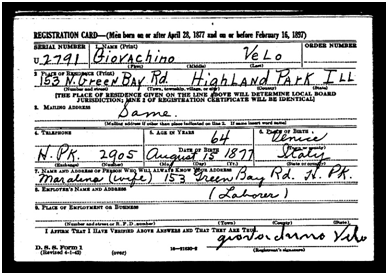 REGISTRATION CARD—(Men born on or after April 28, 1877 and on or before February 16, 1897)
SERIAL NUMBER 1. NAME (Print) ORDER NUMBER
U 2791 Giovachino Velo
(First) (Middle) (Last)
2. PLACE OF RESIDENCE (Print)
153 N. Green Bay Rd Highland Park Ill
(Number and street) (Town, township, village, or city) (County) (State)
[THE PLACE OF RESIDENCE GIVEN ON THE LINE ABOVE WILL DETERMINE LOCAL BOARD
JURISDICTION; LINE 2 OF REGISTRATION CERTIFICATE WILL BE IDENTICAL]
3. MAILING ADDRESS
Same.
[Mailing address if other than place indicated on line 2. If same insert word same]
4. TELEPHONE 5. AGE IN YEARS 6. PLACE OF BIRTH
64 Venice
DATE OF BIRTH (Town or county)
H. PK. 2905 August 15 1877 Italy
(Exchange) (Number) (Mo.) (Day) (Yr.) (State or country)
7. NAME AND ADDRESS OF PERSON WHO WILL ALWAYS KNOW YOUR ADDRESS
(wife) 153 Green Bay Rd. H. PK.
8. EMPLOYER'S NAME AND ADDRESS
(Laborer)
9. PLACE OF EMPLOYMENT OR BUSINESS
(Number and street or R. F. D. number) (Town) (County) (State)
I AFFIRM THAT I HAVE VERIFIED ABOVE ANSWERS AND THAT THEY ARE TRUE.
Velo
D. S. S. Form 1
(Revised 4-1-42) (over) (Registrant's signature)